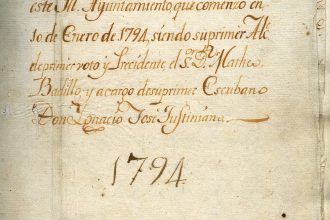 este M. Ayuntamiento que comenzo en
10 de Enero de 1794, siendo su primer Alc.
de primer voto y Presidente el S.r D.n Matheo
Badillo, y a cargo de su primer Escribano
Don Ygnacio José Justiniano.
1794